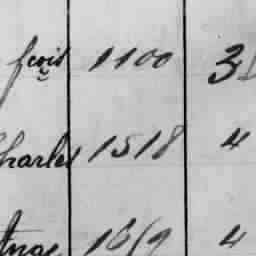 fçois 1100 3
Charles 1518 4
1619 4